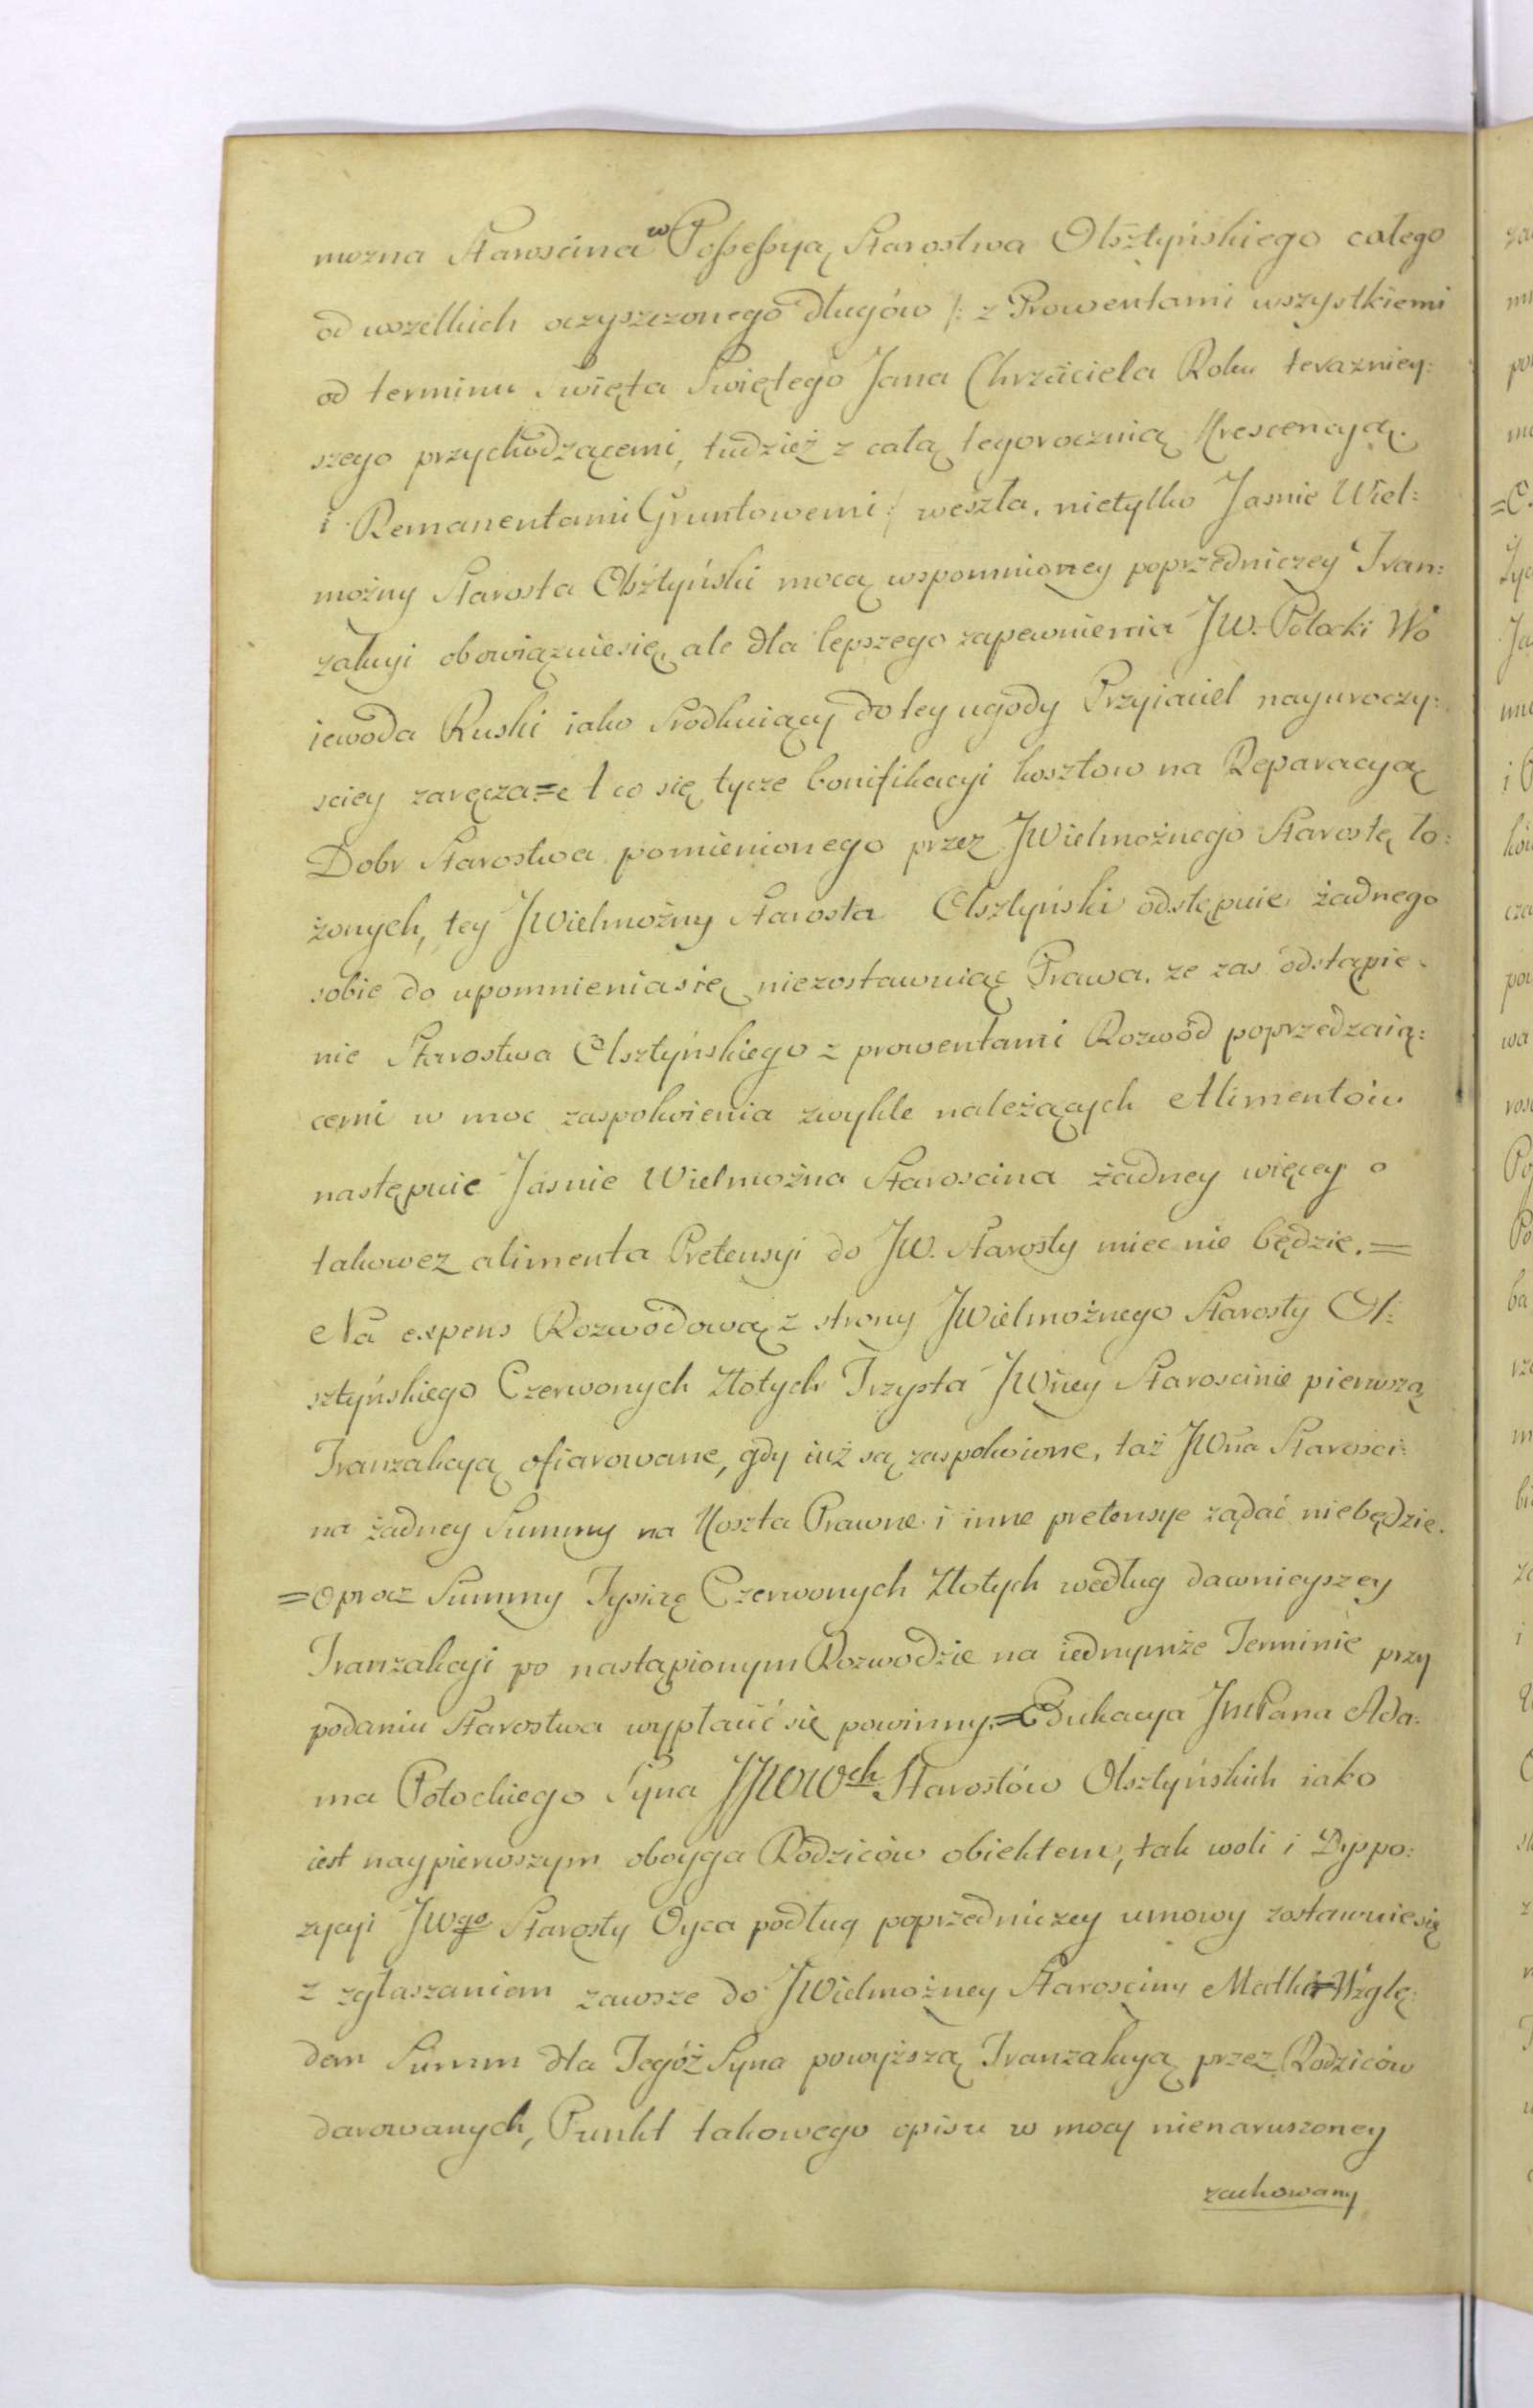 mozna Staroscina w Possessyą Starostwa Olsztyńskiego całego
od wszelkich oczyszczonego długów /: z Prowentami wszystkiemi
od terminu Swięta Swiętego Jana Chrzciciela Roku terazniey:
szego przychodzącemi, tudzież z całą tegoroczną Krescencyą.
i Remanentami Gruntowemi :/ weszła, nietylko Jasnie Wiel:
możny Starosta Olsztyński mocą wspomnioney poprzedniczey Tran:
zakcyi obowiązuiesię, ale dla lepszego zapewnienia JW. Potocki Wo
iewoda Ruski iako Srodkuiący do tey ugody Przyiaciel nayuroczy:
sciey zaręcza = A co się tycze bonifikacyi kosztow na Reparacyą
Dobr Starostwa pomienionego przez JWielmożnego Starostę ło:
żonych, tey JWielmożny Starosta Olsztyński odstępuie żadnego
sobie do upomnieniasię niezostawuiąc Prawa. ze zas odstąpie:
nie Starostwa Olsztyńskiego z prowentami Rozwód poprzedzaią:
cemi w moc zaspokoienia zwykle należących Alimentów
następuie Jasnie Wielmożna Staroscina żadney więcey o
takowez alimenta Pretensyi do JW. Starosty miec nie będzie. =
Na expens Rozwodową z strony JWielmożnego Starosty Ol:
sztyńskiego Czerwonych Złotych Trzysta JWney Staroscinie pierwszą
Tranzakcyą ofiarowane, gdy iuż są zaspokoione, taż JWna Starosci:
na żadney Summy na Koszta Prawne i inne pretensye ządać niebędzie.
= oprocz Summy Tysiąc Czerwonych Złotych według dawnieyszey
Tranzakcyi po nastąpionym Rozwodzie na iednymże Terminie przy
podaniu Starostwa wypłacić się powinny. = Edukacya JmPana Ada:
ma Potockiego Syna JJWWch Starostów Olsztyńskich iako
iest naypierwszym oboyga Rodziców obiektem, tak woli i Dyspo:
zycyi JWgo Starosty Oyca podług poprzedniczey umowy zostawuiesię
z zgłaszaniem zawsze do JWielmożney Starosciny Matki = Wzglę:
dem Summ dla Tegóż Syna powyższą Tranzakcyą przez Rodziców
darowanych, Punkt takowego opisu w mocy nienaruszoney
zachowany